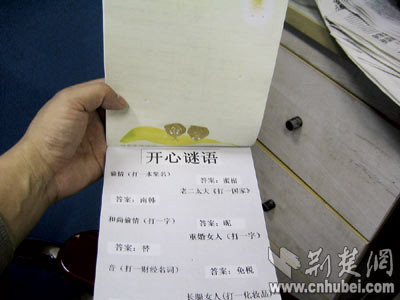 开心谜语
偷情（打一水果名）
答案：蜜桔
老二太大（打一国家）
答案：南韩
和尚偷情（打一字）
答案：呢
重婚女人（打一字）
答案：替
音（打一财经名词）
答案：免税
长腿女人（打一化妆品）
荆楚网
www.cnhubei.com